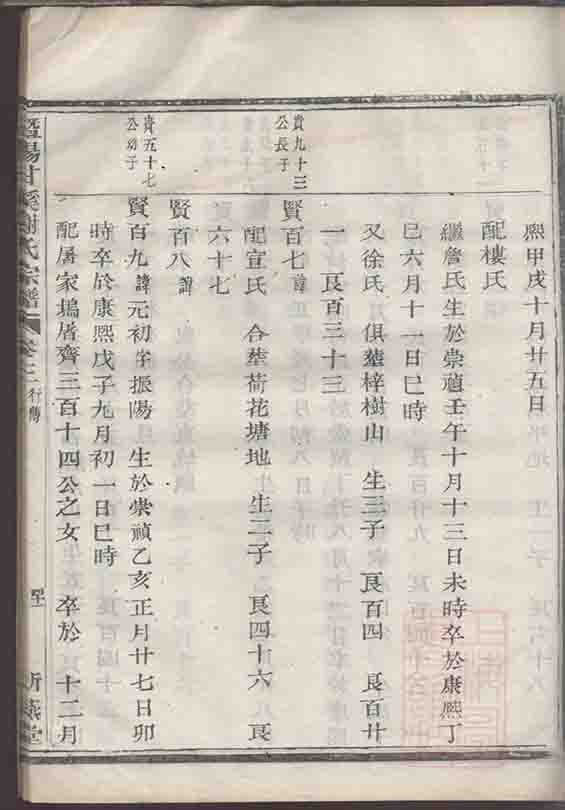 熙甲戌十月廿五日
配樓氏
繼詹氏生於崇禎壬午十月十三日未時卒於康熙丁
巳六月十一日巳時
又徐氏 俱塟梓樹山 生三子 艮百四 艮百廿
一 艮百三十三
貴九十三
公長子
賢百七諱
配宣氏 合塟荷花塘地 生二子 艮四十六 艮
六十七
賢百八諱
貴五十七
公幼子
賢百九諱元初字振陽 生於崇禎乙亥正月廿七日卯
時卒於康熙戊子九月初一日巳時
配屠家塢屠齊三百十四公之女 卒於 十二月
暨陽甘溪謝氏宗譜 卷之二 行傳